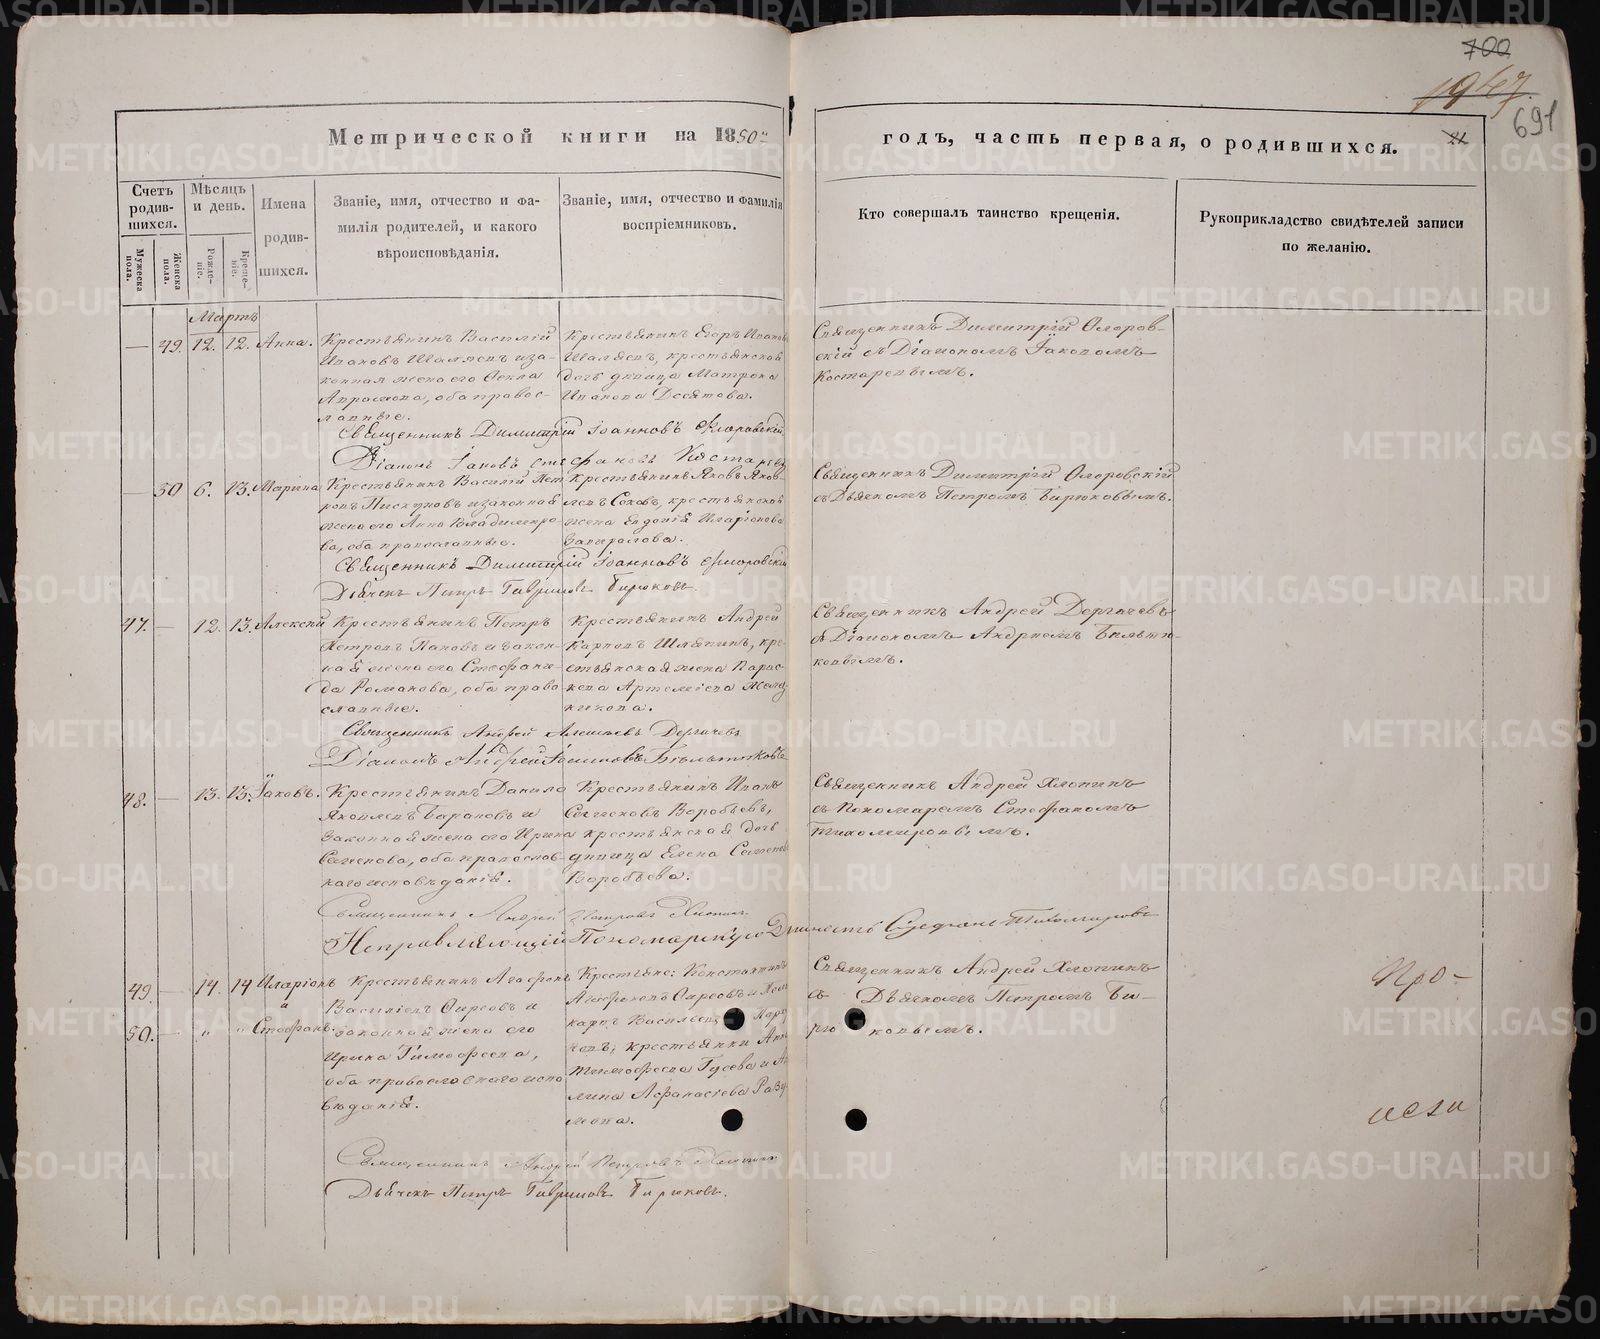 700
1947.
691
21
Метрической книги на 1850й
годъ, часть первая, о родившихся.
Счетъ родив-шихся.
Мужеска пола.
Женска пола.
Мѣсяцъ и день.
Рожде-ніе.
Креще-ніе.
Имена родив-шихся.
Званіе, имя, отчество и фа-
милія родителей, и какого
вѣроисповѣданія.
Званіе, имя, отчество и фамилія
воспріемниковъ.
Кто совершалъ таинство крещенія.
Рукоприкладство свидѣтелей записи
по желанію.
Мартъ
— 49. 12. 12. Анна.
Крестьянинъ Василій
Ивановъ Шаляевъ и за-
конная жена его Ѳекла
Авраамова, оба правос-
лавные.
Крестьянинъ Егоръ Ивановъ
Шаляевъ, крестьянская
дочь дѣвица Матрона
Иванова Десятова.
Священникъ Димитрій Флоров-
скій съ Діакономъ Іаковомъ
Костаревымъ.
Священникъ Димитрій Іоанновъ Флоровскій
Діаконъ Іаковъ Стефановъ Костаревъ
— 50 6. 13. Марина
Крестьянинъ Василій Пет
ровъ Пискуновъ и законная
жена его Анна Владимиро-
ва, оба православные.
Крестьянинъ Яковъ Яков-
левъ Соковъ, крестьянская
жена Евдокія Иларіонова
Священникъ Димитрій Флоровскій
съ Дьячкомъ Петромъ Бирюковымъ.
Священникъ Димитрій Іоанновъ Флоровскій
Дьячекъ Петръ Гавриловъ Бирюковъ.
47. — 12. 13. Алексій
Крестьянинъ Петръ
Петровъ Пановъ и закон-
ная жена его Стефани-
да Романова, оба право
славные.
Крестьянинъ Андрей
Карповъ Шляпинъ, кре-
стьянская жена Парас-
кева Артеміева
Священникъ Андрей Дергачевъ
съ Діакономъ Андреемъ Бѣльти-
ковымъ.
Священникъ Андрей Алексѣевъ Дергачевъ
Діаконъ Андрей Іоанновъ Бѣльтиковъ
48. — 13. 13. Іаковъ.
Крестьянинъ Данило
Яковлевъ Барановъ и
законная жена его Ирина
Семенова, оба православ-
наго исповѣданія.
Крестьянинъ Иванъ
Семеновъ Воробьевъ,
крестьянская дочь
дѣвица Елена Семенова
Воробьева.
Священникъ Андрей Хлопинъ
съ Пономаремъ Стефаномъ
Тихомировымъ.
Священникъ Андрей Петровъ Хлопинъ
Исправляющій Пономарскую Должность Стефанъ Тихомировъ
49. — 14. 14 Иларіонъ
и
50. — " " Стефанъ.
Крестьянинъ Агафонъ
Васильевъ Сырсовъ и
законная жена его
Ирина Тимофеева,
оба православнаго испо
вѣданія.
Крестьяне: Константинъ
Агафоновъ Сырсовъ и
карпъ Васильевъ
крестьянки Анна
Тимофеева Гусева и
Афанасіева
Священникъ Андрей Хлопинъ
съ Дьячкомъ Петромъ Би-
рю ковымъ.
Священникъ Андрей Петровъ Хлопинъ
Дьячекъ Петръ Гавриловъ Бирюковъ.
METRIKI.GASO-URAL.RU